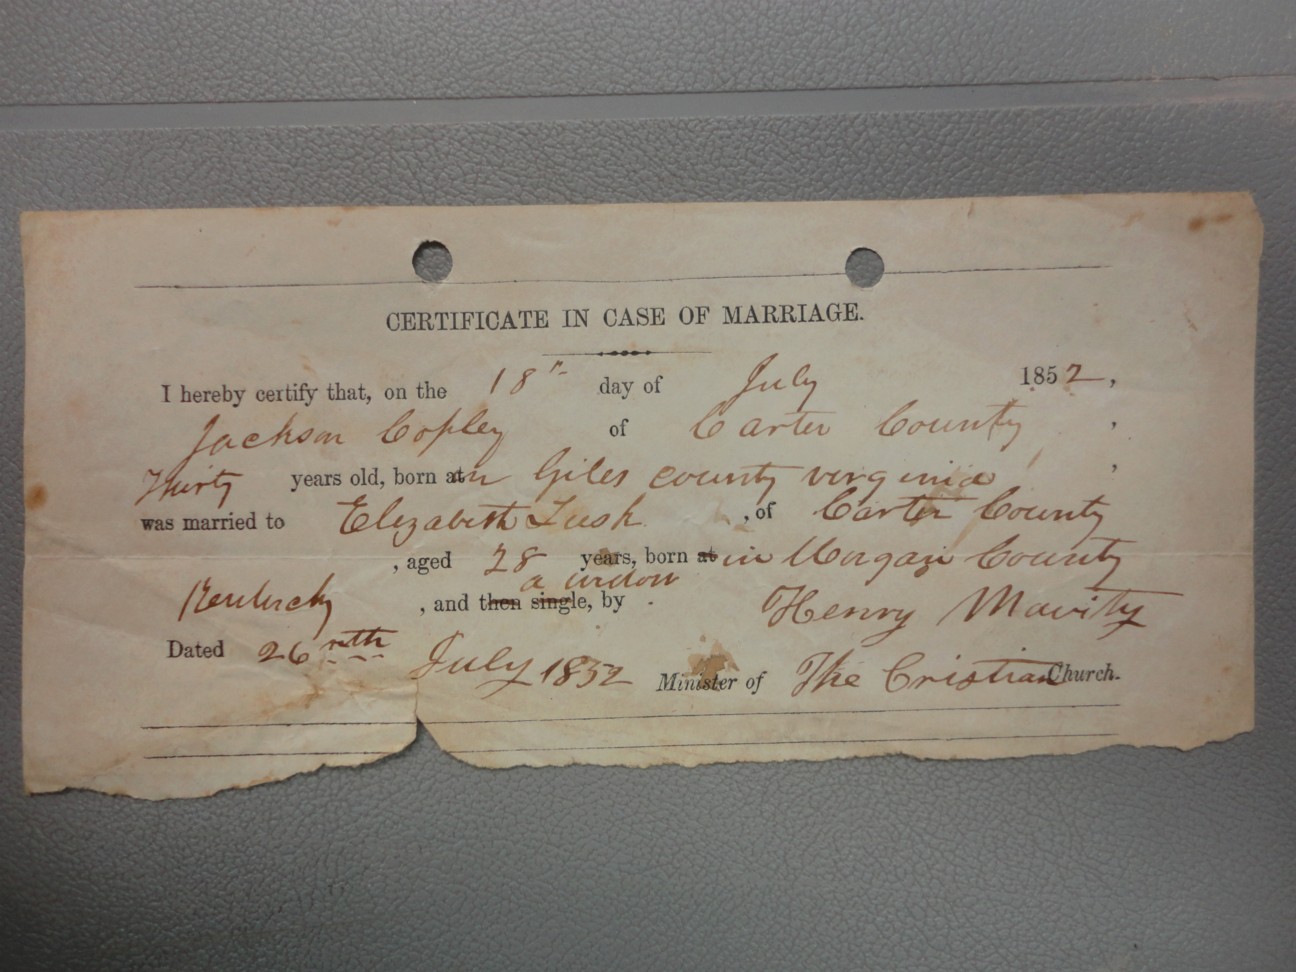 CERTIFICATE IN CASE OF MARRIAGE.
I hereby certify that, on the 18th day of July 1852,
Jackson Copley of Carter County,
Thirty years old, born at in Giles county virginia,
was married to Elizabeth Lusk, of Carter County
, aged 28 years, born at in Morgan County
a widow
Kentucky, and then single, by Henry Mavity
Dated 26nth July 1852 Minister of The Cristian Church.